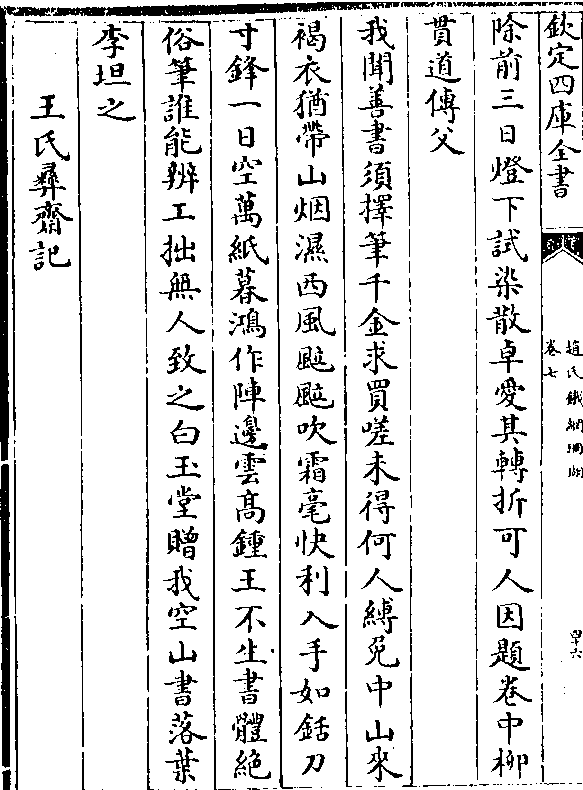 欽定四庫全書
趙氏鐵網珊瑚
卷七
四十六
除前三日燈下試染散卓愛其轉折可人因題卷中柳
貫道傳父
我聞善書須擇筆千金求買嗟未得何人縛兎中山來
褐衣猶帶山烟濕西風颭颭吹霜毫快利入手如銛刀
寸鋒一日空萬紙暮鴻作陣邊雲髙鍾王不生書體絶
俗筆誰能辨工拙無人致之白玉堂贈我空山書落葉
李坦之
王氏彞齋記